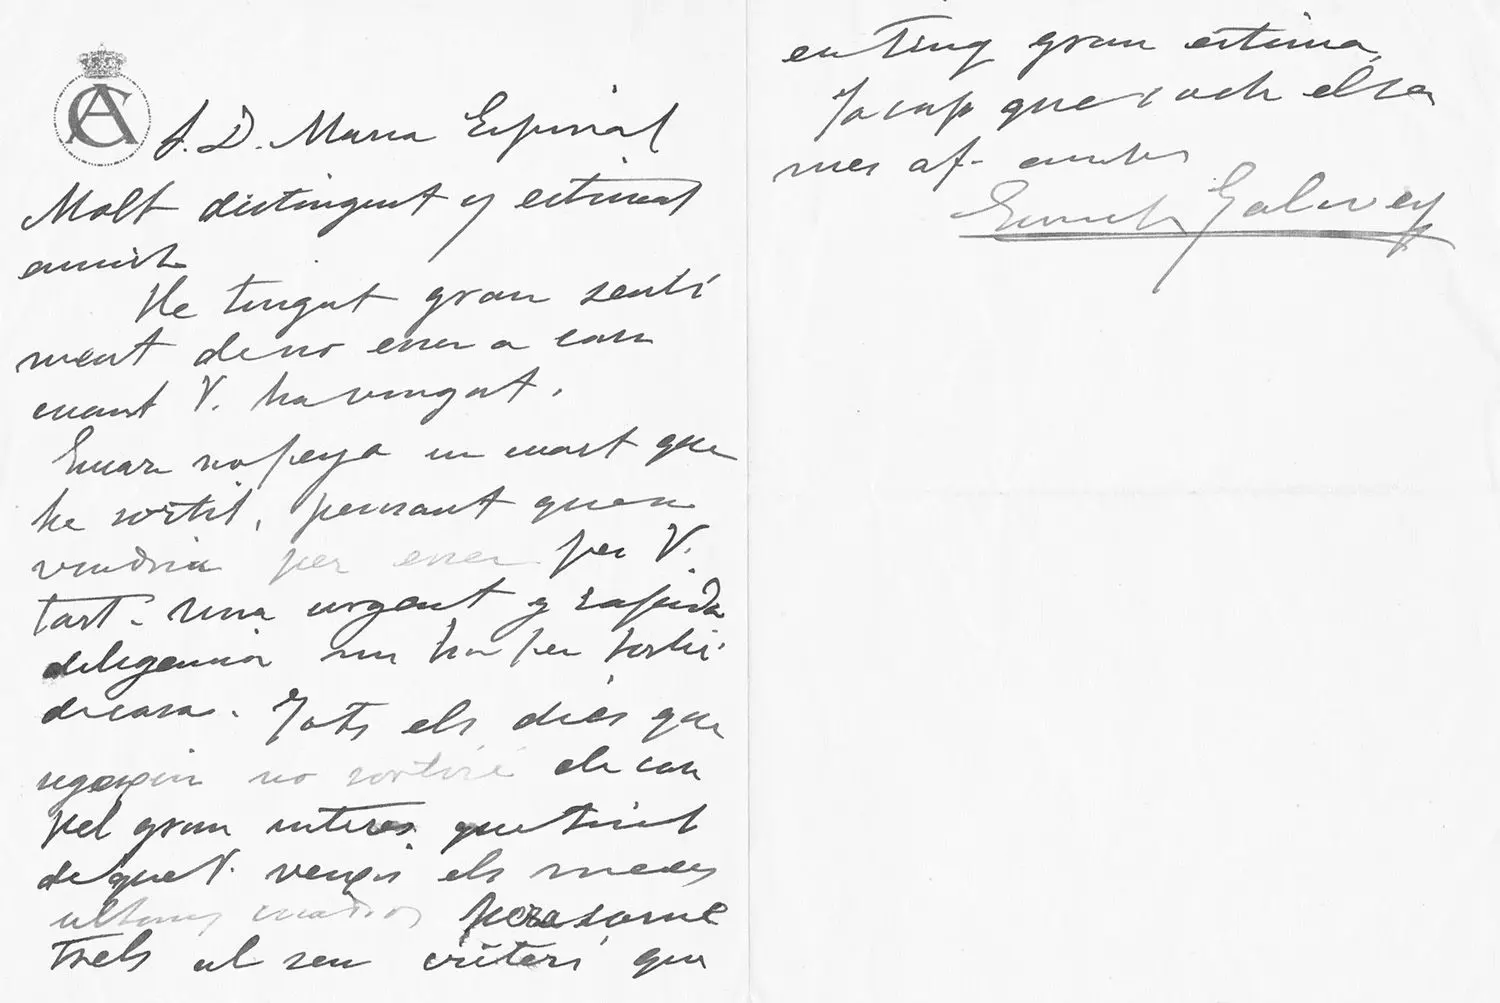 S. D. Maria Espinal
Molt distingit y estimat
amich
He tingut gran senti
ment de no esser a casa
cuant V. ha vingut.
he sortit, pensant que
vindria per esser per V.
tart. Una urgent y rapida
diligencia m ha fet sortir
de casa. Tots els dies que
no sortiré de casa
pel gran interes que tinch
de que V. vengi els meus
ultims cuadros per some
trels al seu criteri que
en tinq gran estima,
Ja sap que soch el seu
mes af. amich
Enrich Galwey